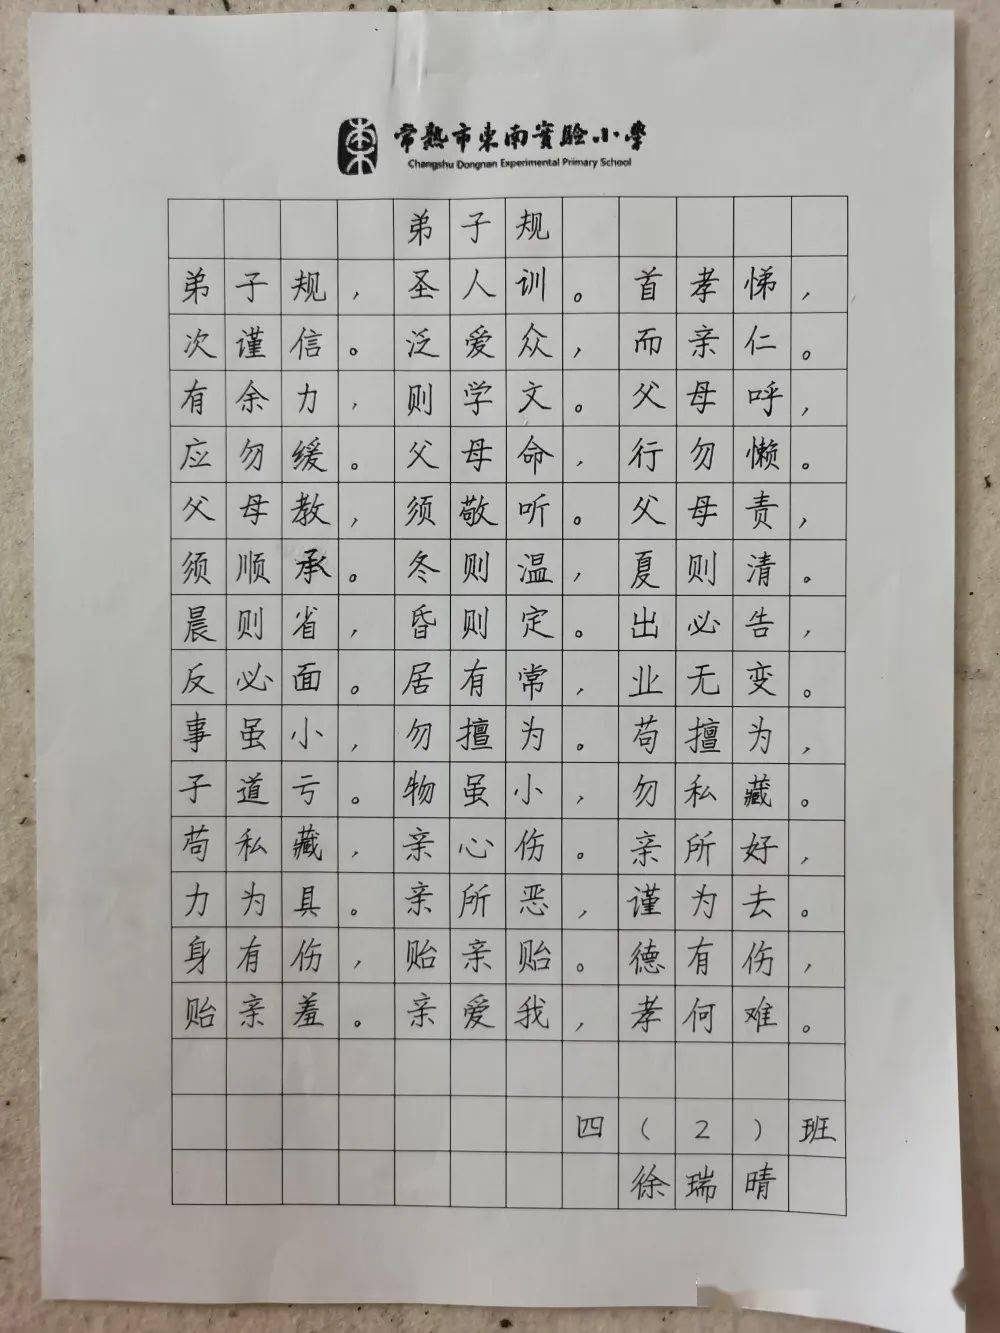 常熟市東南實驗小學
Changshu Dongnan Experimental Primary School
弟子规
弟子规，圣人训。首孝悌，
次谨信。泛爱众，而亲仁。
有余力，则学文。父母呼，
应勿缓。父母命，行勿懒。
父母教，须敬听。父母责，
须顺承。冬则温，夏则清。
晨则省，昏则定。出必告，
反必面。居有常，业无变。
事虽小，勿擅为。苟擅为，
子道亏。物虽小，勿私藏。
苟私藏，亲心伤。亲所好，
力为具。亲所恶，谨为去。
身有伤，贻亲贻。德有伤，
贻亲羞。亲爱我，孝何难。
四（2）班
徐瑞晴